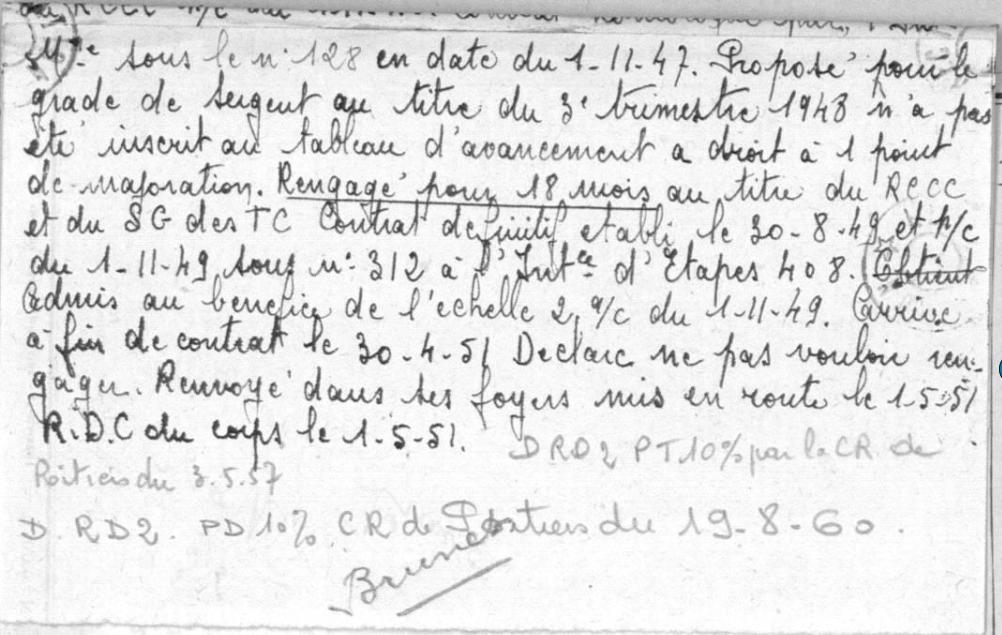 Mre sous le n° 128 en date du 1-11-47. Proposé pour le
grade de sergent au titre du 3e trimestre 1948 n'a pas
été inscrit au tableau d'avancement a droit à 1 point
de majoration. Rengagé pour 18 mois au titre du RCCC
et du SG des TC Contrat definitif etabli le 30-8-49 et p/c
du 1-11-49 sous n° 312 à l'Intce d'Etapes 408. Obtient
Admis au benefice de l'echelle 2, a/c du 1-11-49. Arrive
à fin de contrat le 30-4-51 Declare ne pas vouloir ren-
gager. Renvoyé dans ses foyers mis en route le 1-5-51
R.D.C du corps le 1-5-51. DRD2 PT 10% par la CR de
Poitiers du 3.5.57
D. RD2. PD 10% CR de Poitiers du 19-8-60.